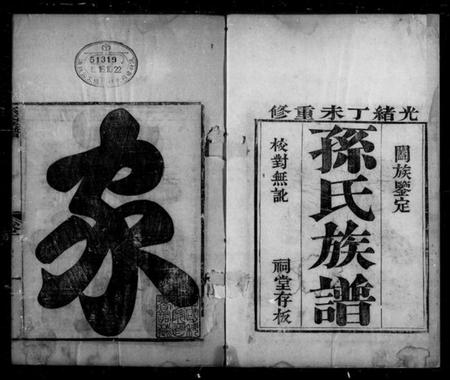 光緒丁未重修
闔族鑒定
孫氏族譜
校對無訛
祠堂存板
家
51319